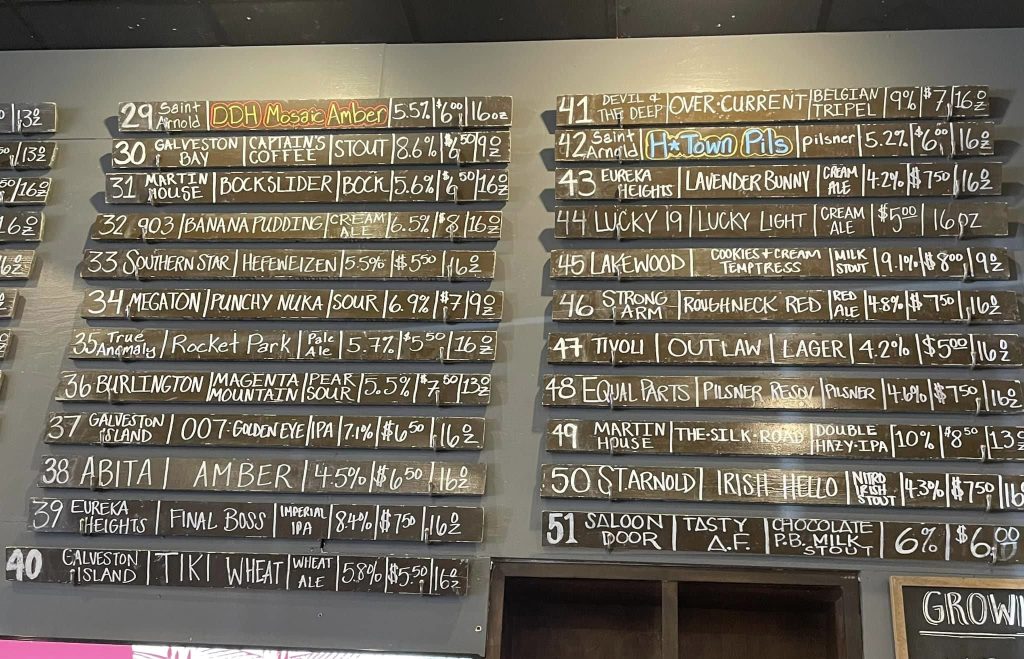 13 2/Z
13 2/Z
50 16 2/Z
16 2/Z
16 2/Z
29 Saint Arnold | DDH Mosaic Amber | 5.5% | $6.00 | 16oz
30 GALVESTON BAY | CAPTAIN'S COFFEE | STOUT | 8.6% | $6.50 | 9oz
31 MARTIN HOUSE | BOCKSLIDER | BOCK | 5.6% | $6.50 | 16oz
32 903 | BANANA PUDDING | CREAM ALE | 6.5% | $8 | 16oz
33 SOUTHERN STAR | HEFEWEIZEN | 5.5% | $5.50 | 16oz
34 MEGATON | PUNCHY NUKA | SOUR | 6.9% | $7 | 9oz
35 True Anomaly | Rocket Park | Pale Ale | 5.7% | $5.50 | 16oz
36 BURLINGTON | MAGENTA MOUNTAIN | PEAR SOUR | 5.5% | $7.50 | 13oz
37 GALVESTON ISLAND | 007·GOLDEN EYE | IPA | 7.1% | $6.50 | 16oz
38 ABITA | AMBER | 4.5% | $6.50 | 16oz
39 EUREKA HEIGHTS | FINAL BOSS | IMPERIAL IPA | 8.4% | $7.50 | 16oz
40 GALVESTON ISLAND | TIKI WHEAT | WHEAT ALE | 5.8% | $5.50 | 16oz
41 DEVIL & THE DEEP | OVER·CURRENT | BELGIAN TRIPEL | 9% | $7 | 16oz
42 Saint Arnold | H*Town Pils | pilsner | 5.2% | $6.00 | 16oz
43 EUREKA HEIGHTS | LAVENDER BUNNY | CREAM ALE | 4.2% | $7.50 | 16oz
44 LUCKY 19 | LUCKY LIGHT | CREAM ALE | $5.00 | 16oz
45 LAKEWOOD | COOKIES + CREAM TEMPTRESS | MILK STOUT | 9.1% | $8.00 | 9oz
46 STRONG ARM | ROUGHNECK RED | RED ALE | 4.8% | $7.50 | 16oz
47 TIVOLI | OUTLAW | LAGER | 4.2% | $5.00 | 16oz
48 EQUAL PARTS | PILSNER RESDV | PILSNER | 4.6% | $7.50 | 16oz
49 MARTIN HOUSE | THE·SILK·ROAD | DOUBLE HAZY·IPA | 10% | $8.50 | 13oz
50 ST.ARNOLD | IRISH HELLO | NITRO IRISH STOUT | 4.3% | $7.50 | 16
51 SALOON DOOR | TASTY A.F. | CHOCOLATE P.B. MILK STOUT | 6% | $6.00 | 16oz
GROWL